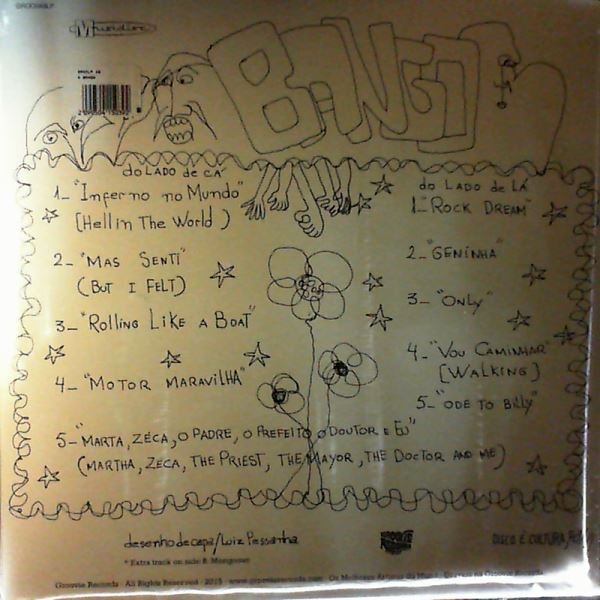 Musidisc
BANGO
do LADO de CÁ
1_ "Inferno no Mundo"
(Hell in The World)
2_ "MAS SENTI"
(BUT I FELT)
3_ "Rolling Like A Boat"
4_ "MOTOR MARAVILHA"
5_ "MARTA, ZÉCA, O PADRE, O PREFEITO, O DOUTOR E EU"
(MARTHA, ZECA, THE PRIEST, THE MAYOR, THE DOCTOR AND ME)
do LADO de LÁ
1_ "ROCK DREAM"
2_ "GENINHA"
3_ "Only"
4_ "VOU CAMINHAR"
[WALKING]
5_ "ODE TO BILLY"
desenho de capa/Luiz Pessanha
GROOVIE
DISCO É CULTURA
* Extra track on side B: Mongoose
Groovie Records - All Rights Reserved - 2015 - www.groovierecords.com